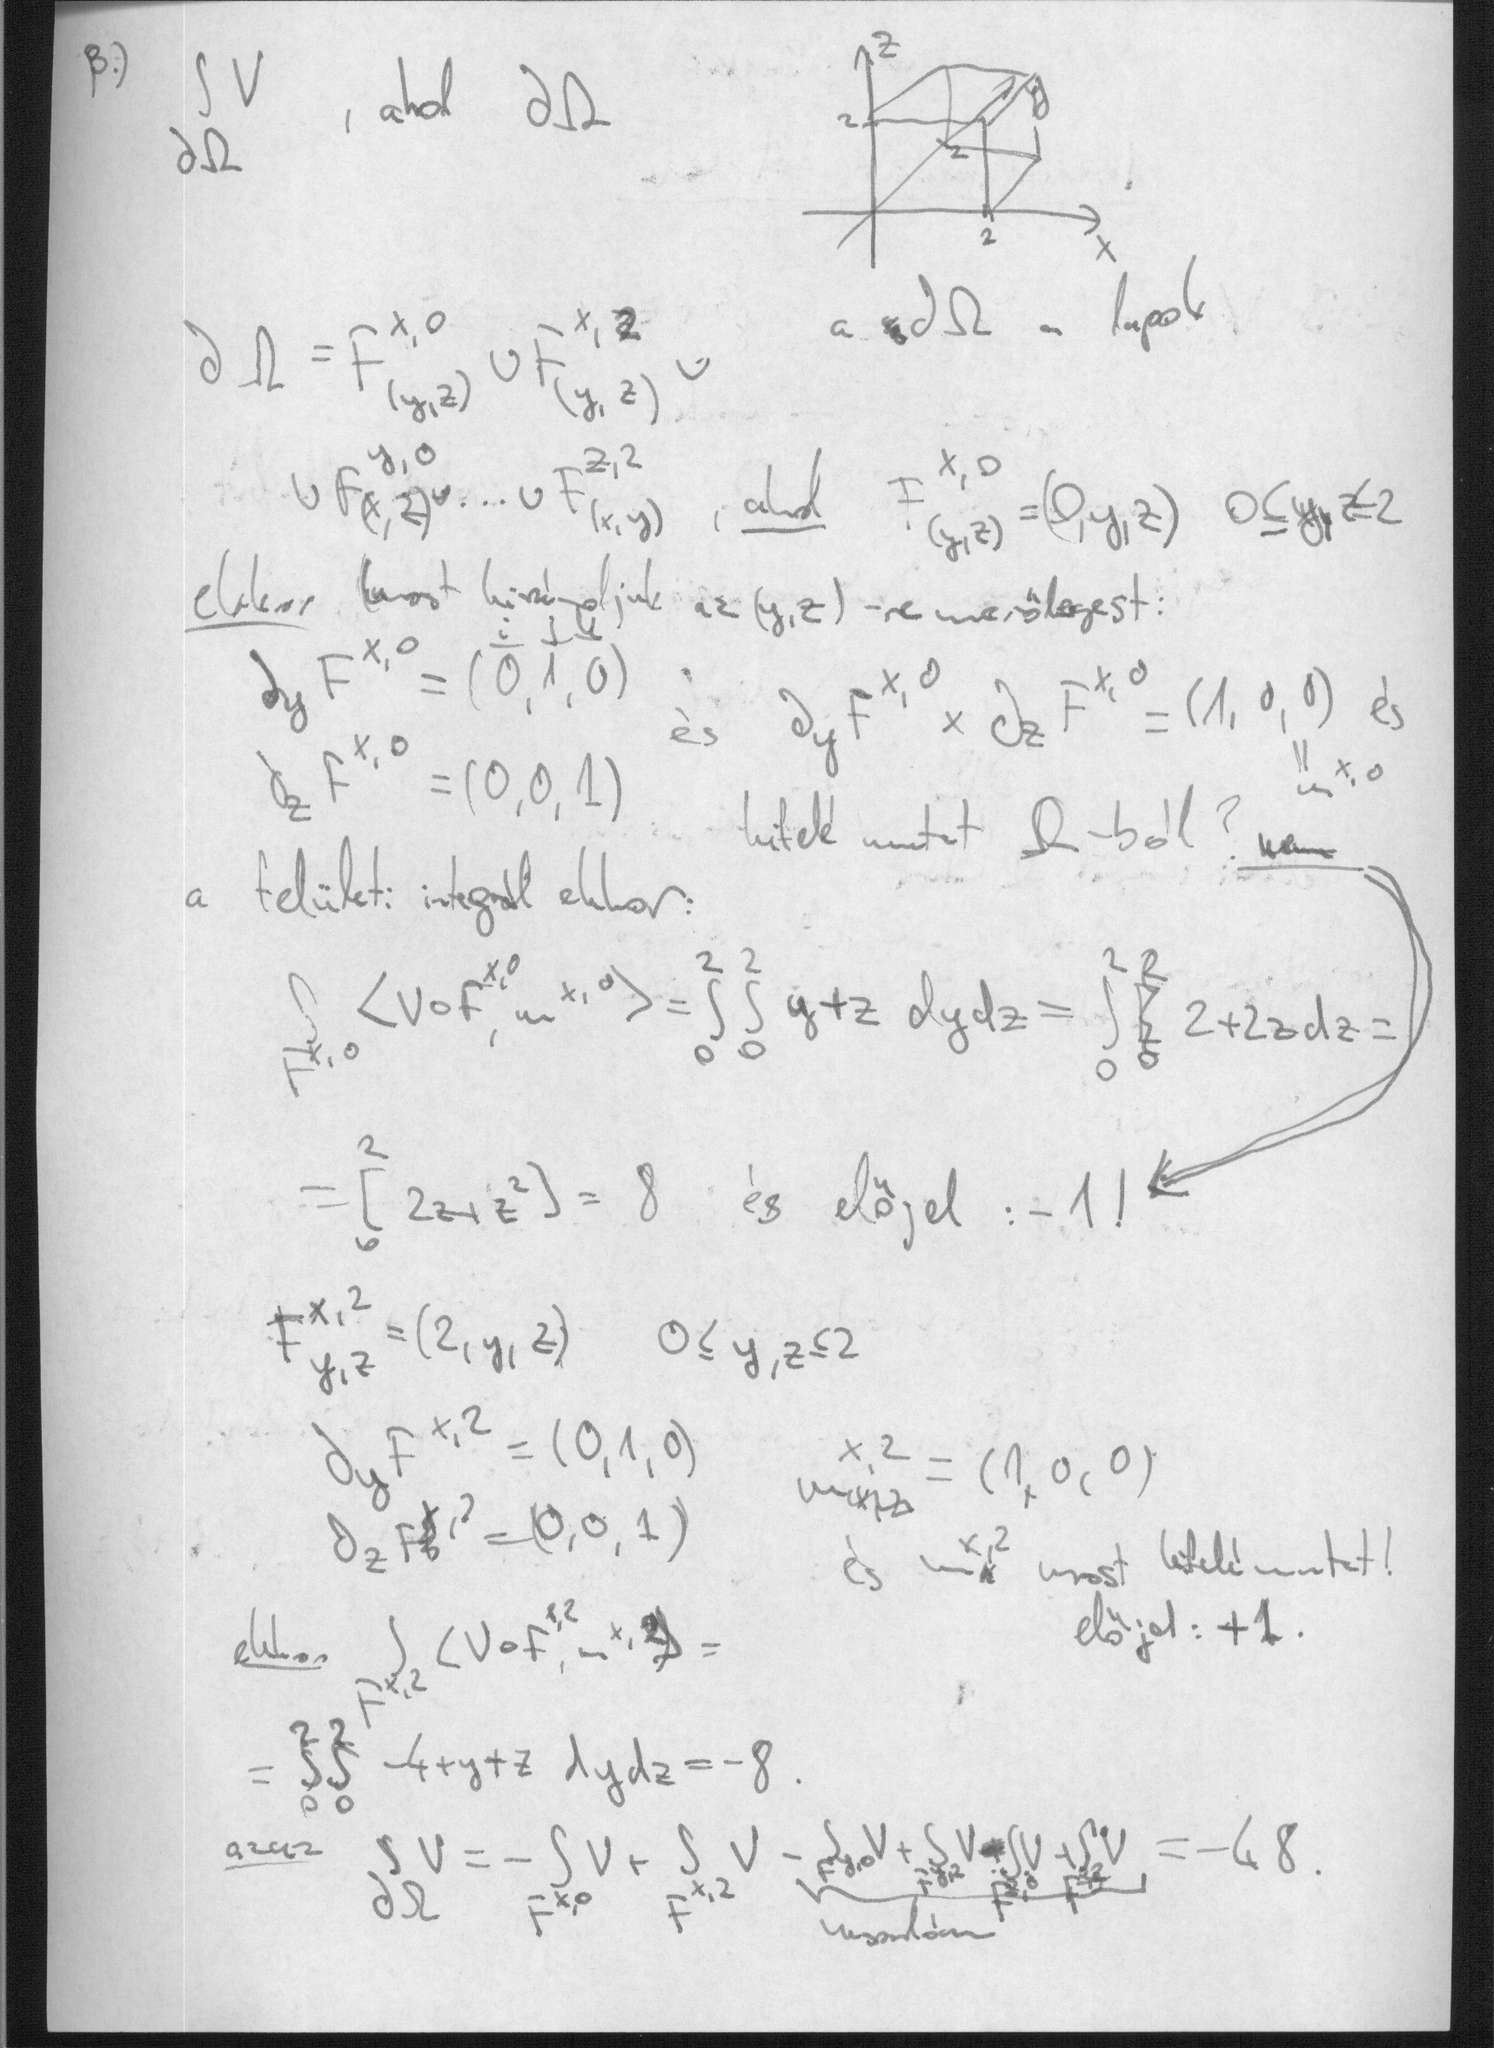 β.) ∫_{∂Ω} V , ahol ∂Ω
z
2
2
2
x
a ∂Ω a lapok
∂Ω = F^{x,0}_{(y,z)} ∪ F^{x,2}_{(y,z)} ∪
∪ F^{y,0}_{(x,z)} ∪ ... ∪ F^{z,2}_{(x,y)} , ahol F^{x,0}_{(y,z)} = (0,y,z) 0≤y,z≤2
ekkor most kiszámoljuk az (y,z)-re merőlegest:
i j k
∂_y F^{x,0} = (0,1,0)
∂_z F^{x,0} = (0,0,1)
és ∂_y F^{x,0} × ∂_z F^{x,0} = (1,0,0) és
|| m^{x,0}
kifelé mutat Ω-ból? nem
a felületi integrál ekkor:
∫_{F^{x,0}} <V∘F^{x,0}, m^{x,0}> = ∫_0^2 ∫_0^2 y+z dydz = ∫_0^2 2+2z dz =
= [2z+z²]_0^2 = 8 és előjel : -1!
F^{x,2}_{y,z} = (2,y,z) 0≤y,z≤2
∂_y F^{x,2} = (0,1,0) m^{x,2} = (1,0,0)
∂_z F^{x,2} = (0,0,1)
és m^{x,2} most kifelé mutat!
előjel: +1.
ekkor ∫_{F^{x,2}} <V∘F^{x,2}, m^{x,2}> =
= ∫_0^2 ∫_0^2 -4+y+z dydz = -8.
azaz ∫_{∂Ω} V = -∫_{F^{x,0}} V + ∫_{F^{x,2}} V - ∫_{F^{y,0}} V + ∫_{F^{y,2}} V - ∫_{F^{z,0}} V + ∫_{F^{z,2}} V = -48.
hasonlóan